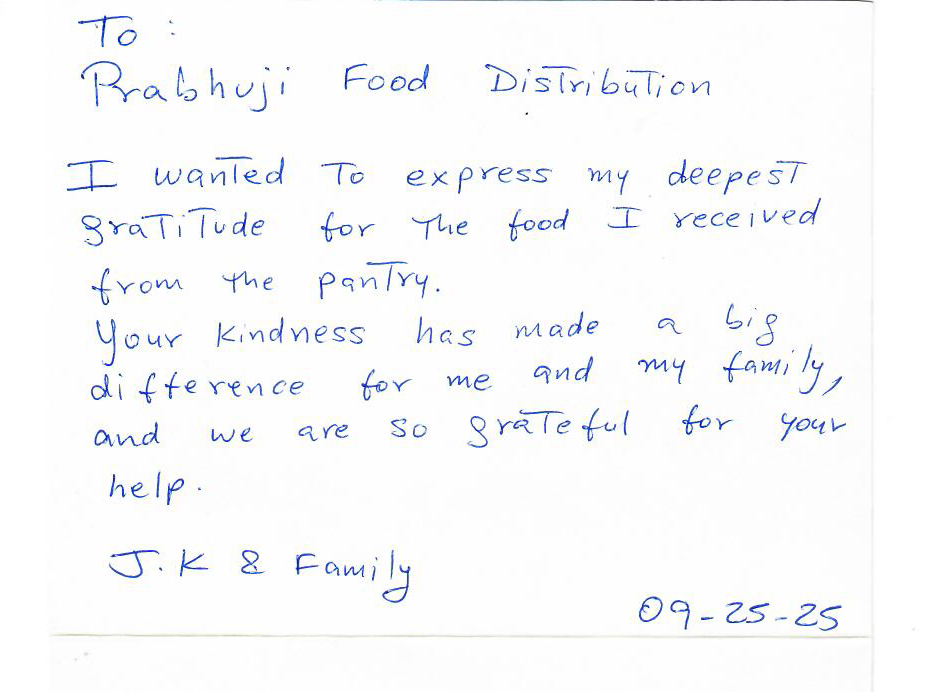 To :
Prabhuji Food Distribution
I wanted to express my deepest
gratitude for the food I received
from the pantry.
Your kindness has made a big
difference for me and my family,
and we are so grateful for your
help.
J.K & Family
09-25-25